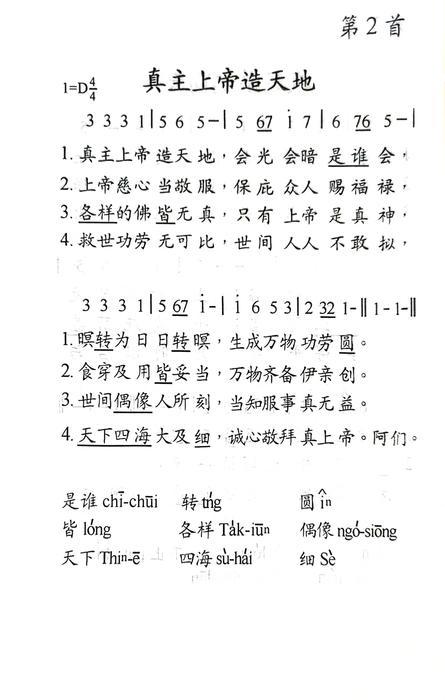 第2首
1=D4/4 真主上帝造天地
3 3 3 1|5 6 5-|5 67 i 7|6 76 5-|
1. 真主上帝造天地，会光会暗是谁会，
2. 上帝慈心当敬服，保庇众人赐福禄，
3. 各样的佛皆无真，只有上帝是真神，
4. 救世功劳无可比，世间人人不敢拟，
3 3 3 1|5 67 i-|i 6 5 3|2 32 1-‖1-1-‖
1. 暝转为日日转暝，生成万物功劳圆。
2. 食穿及用皆妥当，万物齐备伊亲创。
3. 世间偶像人所刻，当知服事真无益。
4. 天下四海大及细，诚心敬拜真上帝。阿们。
是谁 chī-chūi 转 tńg 圆 îⁿ
皆 lóng 各样 Ta̍k-iūⁿ 偶像 ngó-siōng
天下 Thiⁿ-ē 四海 sù-hái 细 Sè